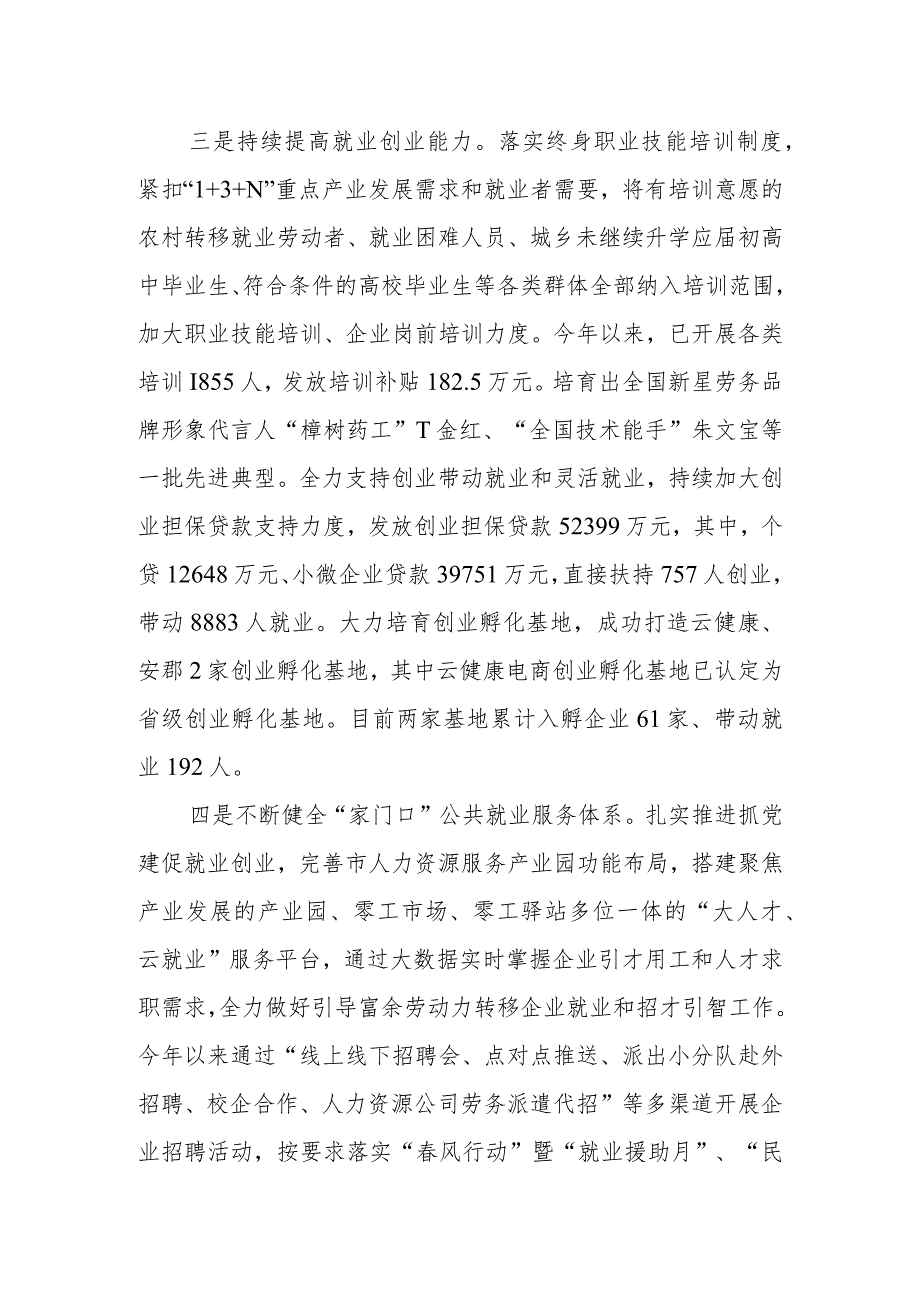 三是持续提高就业创业能力。落实终身职业技能培训制度，
紧扣“1+3+N”重点产业发展需求和就业者需要，将有培训意愿的
农村转移就业劳动者、就业困难人员、城乡未继续升学应届初高
中毕业生、符合条件的高校毕业生等各类群体全部纳入培训范围，
加大职业技能培训、企业岗前培训力度。今年以来，已开展各类
培训I855 人，发放培训补贴 182.5 万元。培育出全国新星劳务品
牌形象代言人“樟树药工”T 金红、“全国技术能手”朱文宝等
一批先进典型。全力支持创业带动就业和灵活就业，持续加大创
业担保贷款支持力度，发放创业担保贷款 52399 万元，其中，个
贷 12648 万元、小微企业贷款 39751 万元，直接扶持 757 人创业，
带动 8883 人就业。大力培育创业孵化基地，成功打造云健康、
安郡 2 家创业孵化基地，其中云健康电商创业孵化基地已认定为
省级创业孵化基地。目前两家基地累计入孵企业 61 家、带动就
业 192 人。
四是不断健全“家门口”公共就业服务体系。扎实推进抓党
建促就业创业，完善市人力资源服务产业园功能布局，搭建聚焦
产业发展的产业园、零工市场、零工驿站多位一体的“大人才、
云就业”服务平台，通过大数据实时掌握企业引才用工和人才求
职需求，全力做好引导富余劳动力转移企业就业和招才引智工作。
今年以来通过“线上线下招聘会、点对点推送、派出小分队赴外
招聘、校企合作、人力资源公司劳务派遣代招”等多渠道开展企
业招聘活动，按要求落实“春风行动”暨“就业援助月”、“民